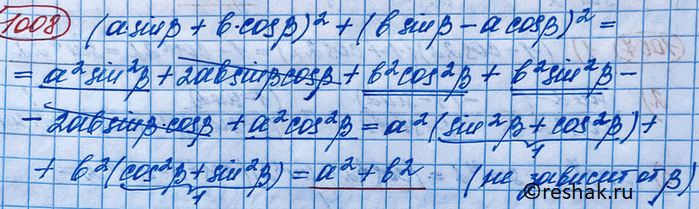 1008 (a sinβ + b·cosβ)² + (b sinβ − a cosβ)² =
= a² sin²β + 2ab sinβ cosβ + b² cos²β + b² sin²β −
− 2ab sinβ·cosβ + a² cos²β = a² (sin²β + cos²β) +
1
+ b² (cos²β + sin²β) = a² + b² (не зависит от β)
1
©reshak.ru